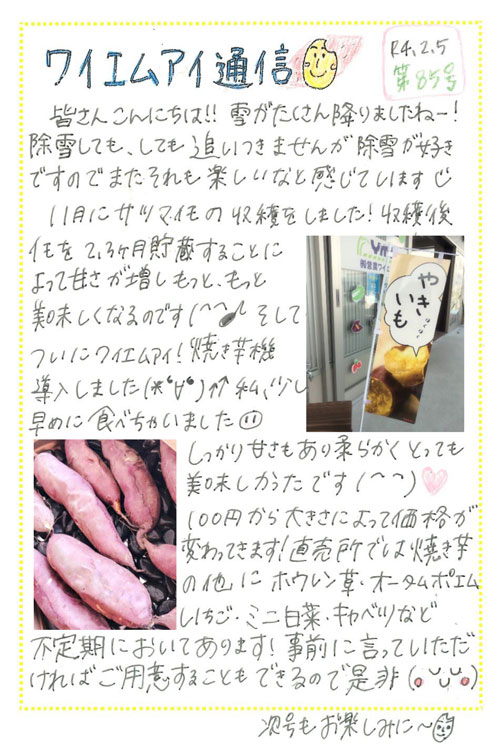 ワイエムアイ通信
R4.2.5
第85号
皆さんこんにちは!! 雪がたくさん降りましたねー!
除雪しても、しても追いつきませんが除雪が好き
ですのでまたそれも楽しいなと感じています
11月にサツマイモの収穫をしました!収穫後
イモを2,3ヶ月貯蔵することに
よって甘さが増しもっと、もっと
美味しくなるのです(^^ そして
ついにワイエムアイ!焼き芋機
導入しました(*°∀°)↑↑ 私、少し
早めに食べちゃいました
やきいも
しっかり甘さもあり柔らかくとっても
美味しかったです(^^)
100円から大きさによって価格が
変わってきます!直売所では焼き芋
の他にホウレン草・オータムポエム
いちご・ミニ白菜・キャベツなど
不定期においてあります!事前に言っていただけ
ければご用意することもできるので是非
次号もお楽しみに〜